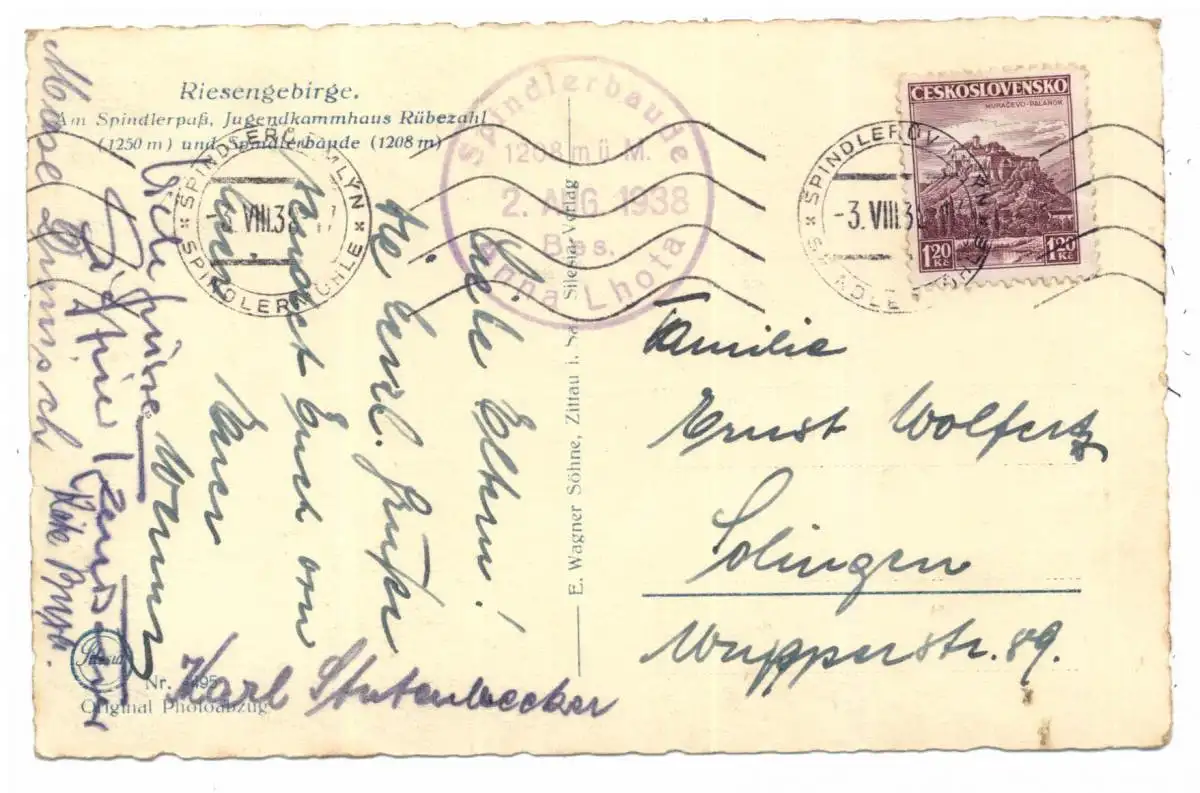 Riesengebirge.
Am Spindlerpaß, Jugendkammhaus Rübezahl
(1250 m) und Spindlerbaude (1208 m)
ŠPINDLERŮV MLÝN
VIII.38
SPINDLERMÜHLE
Spindlerbaude
1208 m ü. M.
2. AUG 1938
Bes.
Anna Lhota
ŠPINDLERŮV MLÝN
-3. VIII.38
SPINDLERMÜHLE
ČESKOSLOVENSKO
MUKAČEVO-PALANOK
1.20 Kč
1.20 Kč
Liebe Eltern!
herzl. Grüße
sendet Euch von
hier
Euer
Werner
Karl Stutenbecker
Familie
Ernst Wolfertz
Solingen
Wupperstr. 89.
E. Wagner Söhne, Zittau i. Sa. Silesia-Verlag
Silesia
Nr.
Original Photoabzug